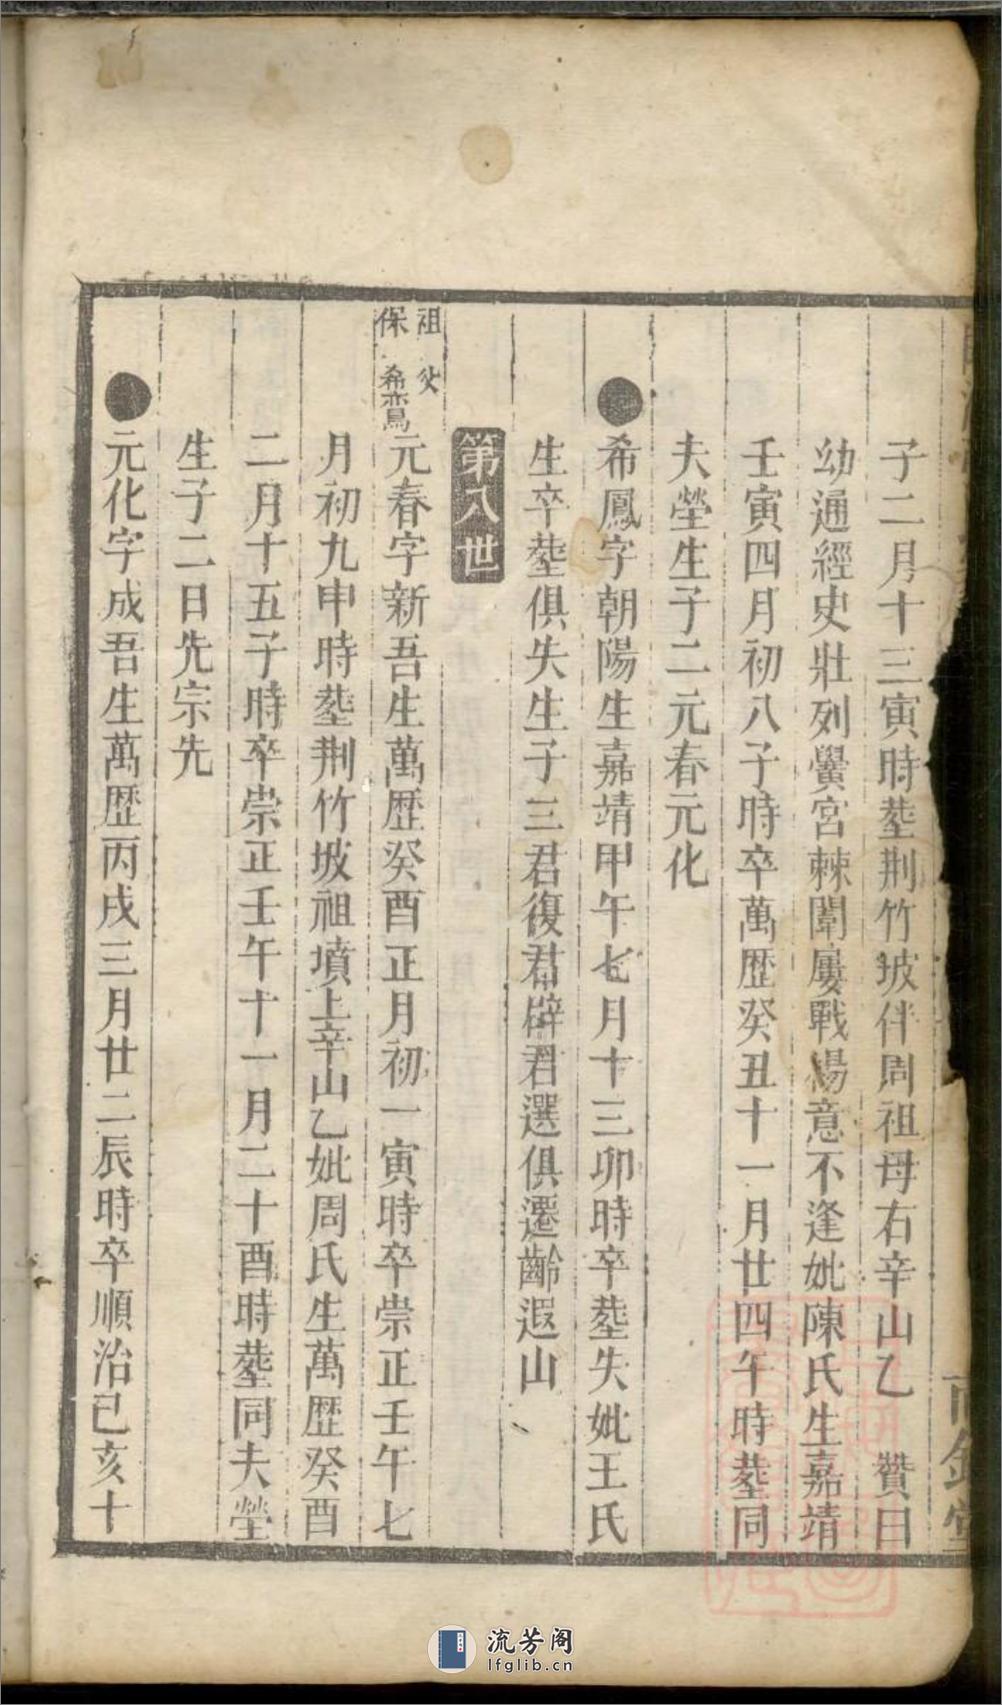 子二月十三寅時塟荆竹坡伴周祖母右辛山乙　贊曰
幼通經史壯列黌宮棘闈屢戰楊意不逢妣陳氏生嘉靖
壬寅四月初八子時卒萬歴癸丑十一月廿四午時塟同
夫塋生子二元春元化
希鳳字朝陽生嘉靖甲午七月十三卯時卒塟失妣王氏
生卒塟俱失生子三君復君辟君選俱遷齡遐山
第八世
祖保
父希鸞
元春字新吾生萬歴癸酉正月初一寅時卒崇正壬午七
月初九申時塟荆竹坡祖墳上辛山乙妣周氏生萬歴癸酉
二月十五子時卒崇正壬午十一月二十酉時塟同夫塋
生子二日先宗先
元化字成吾生萬歴丙戌三月廿二辰時卒順治己亥十
流芳阁
lfglib.cn